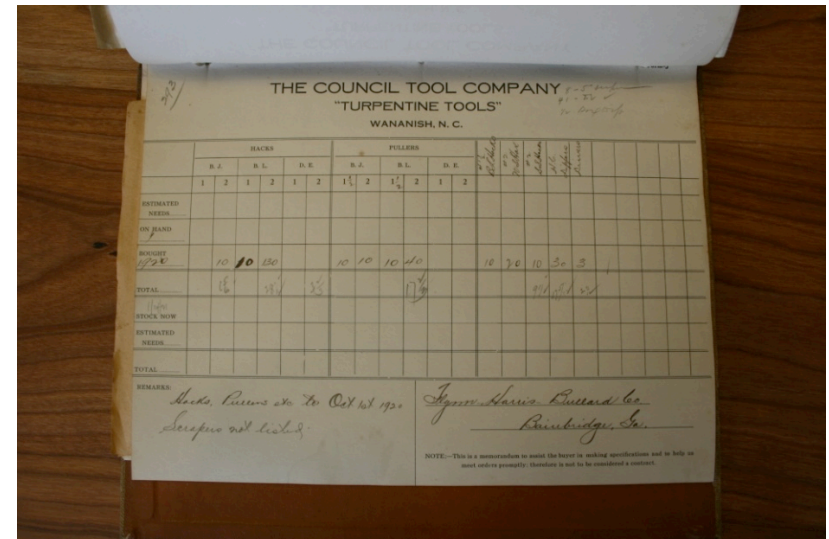 293
THE COUNCIL TOOL COMPANY
"TURPENTINE TOOLS"
WANANISH, N. C.
HACKS PULLERS
B. J. B. L. D. E. B. J. B. L. D. E.
1 2 1 2 1 2 1½ 2 1½ 2 1 2
ESTIMATED
NEEDS
ON HAND
BOUGHT
1920 10 10 130 10 10 10 40 10 20 10 30 3
TOTAL
STOCK NOW
ESTIMATED
NEEDS
TOTAL
REMARKS:
Hacks, Pullers etc to Oct 1st 1920
Scrapers not listed.
Flynn Harris Bullard Co
Bainbridge, Ga.
NOTE:—This is a memorandum to assist the buyer in making specifications and to help us
meet orders promptly; therefore is not to be considered a contract.